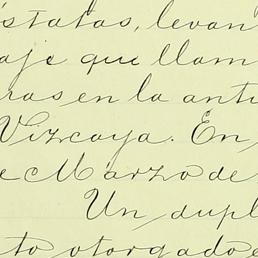 statas, levan
aje que llam
ras en la anti
Vizcaya. En
e Marzo de
Un dupl
to otorgado e